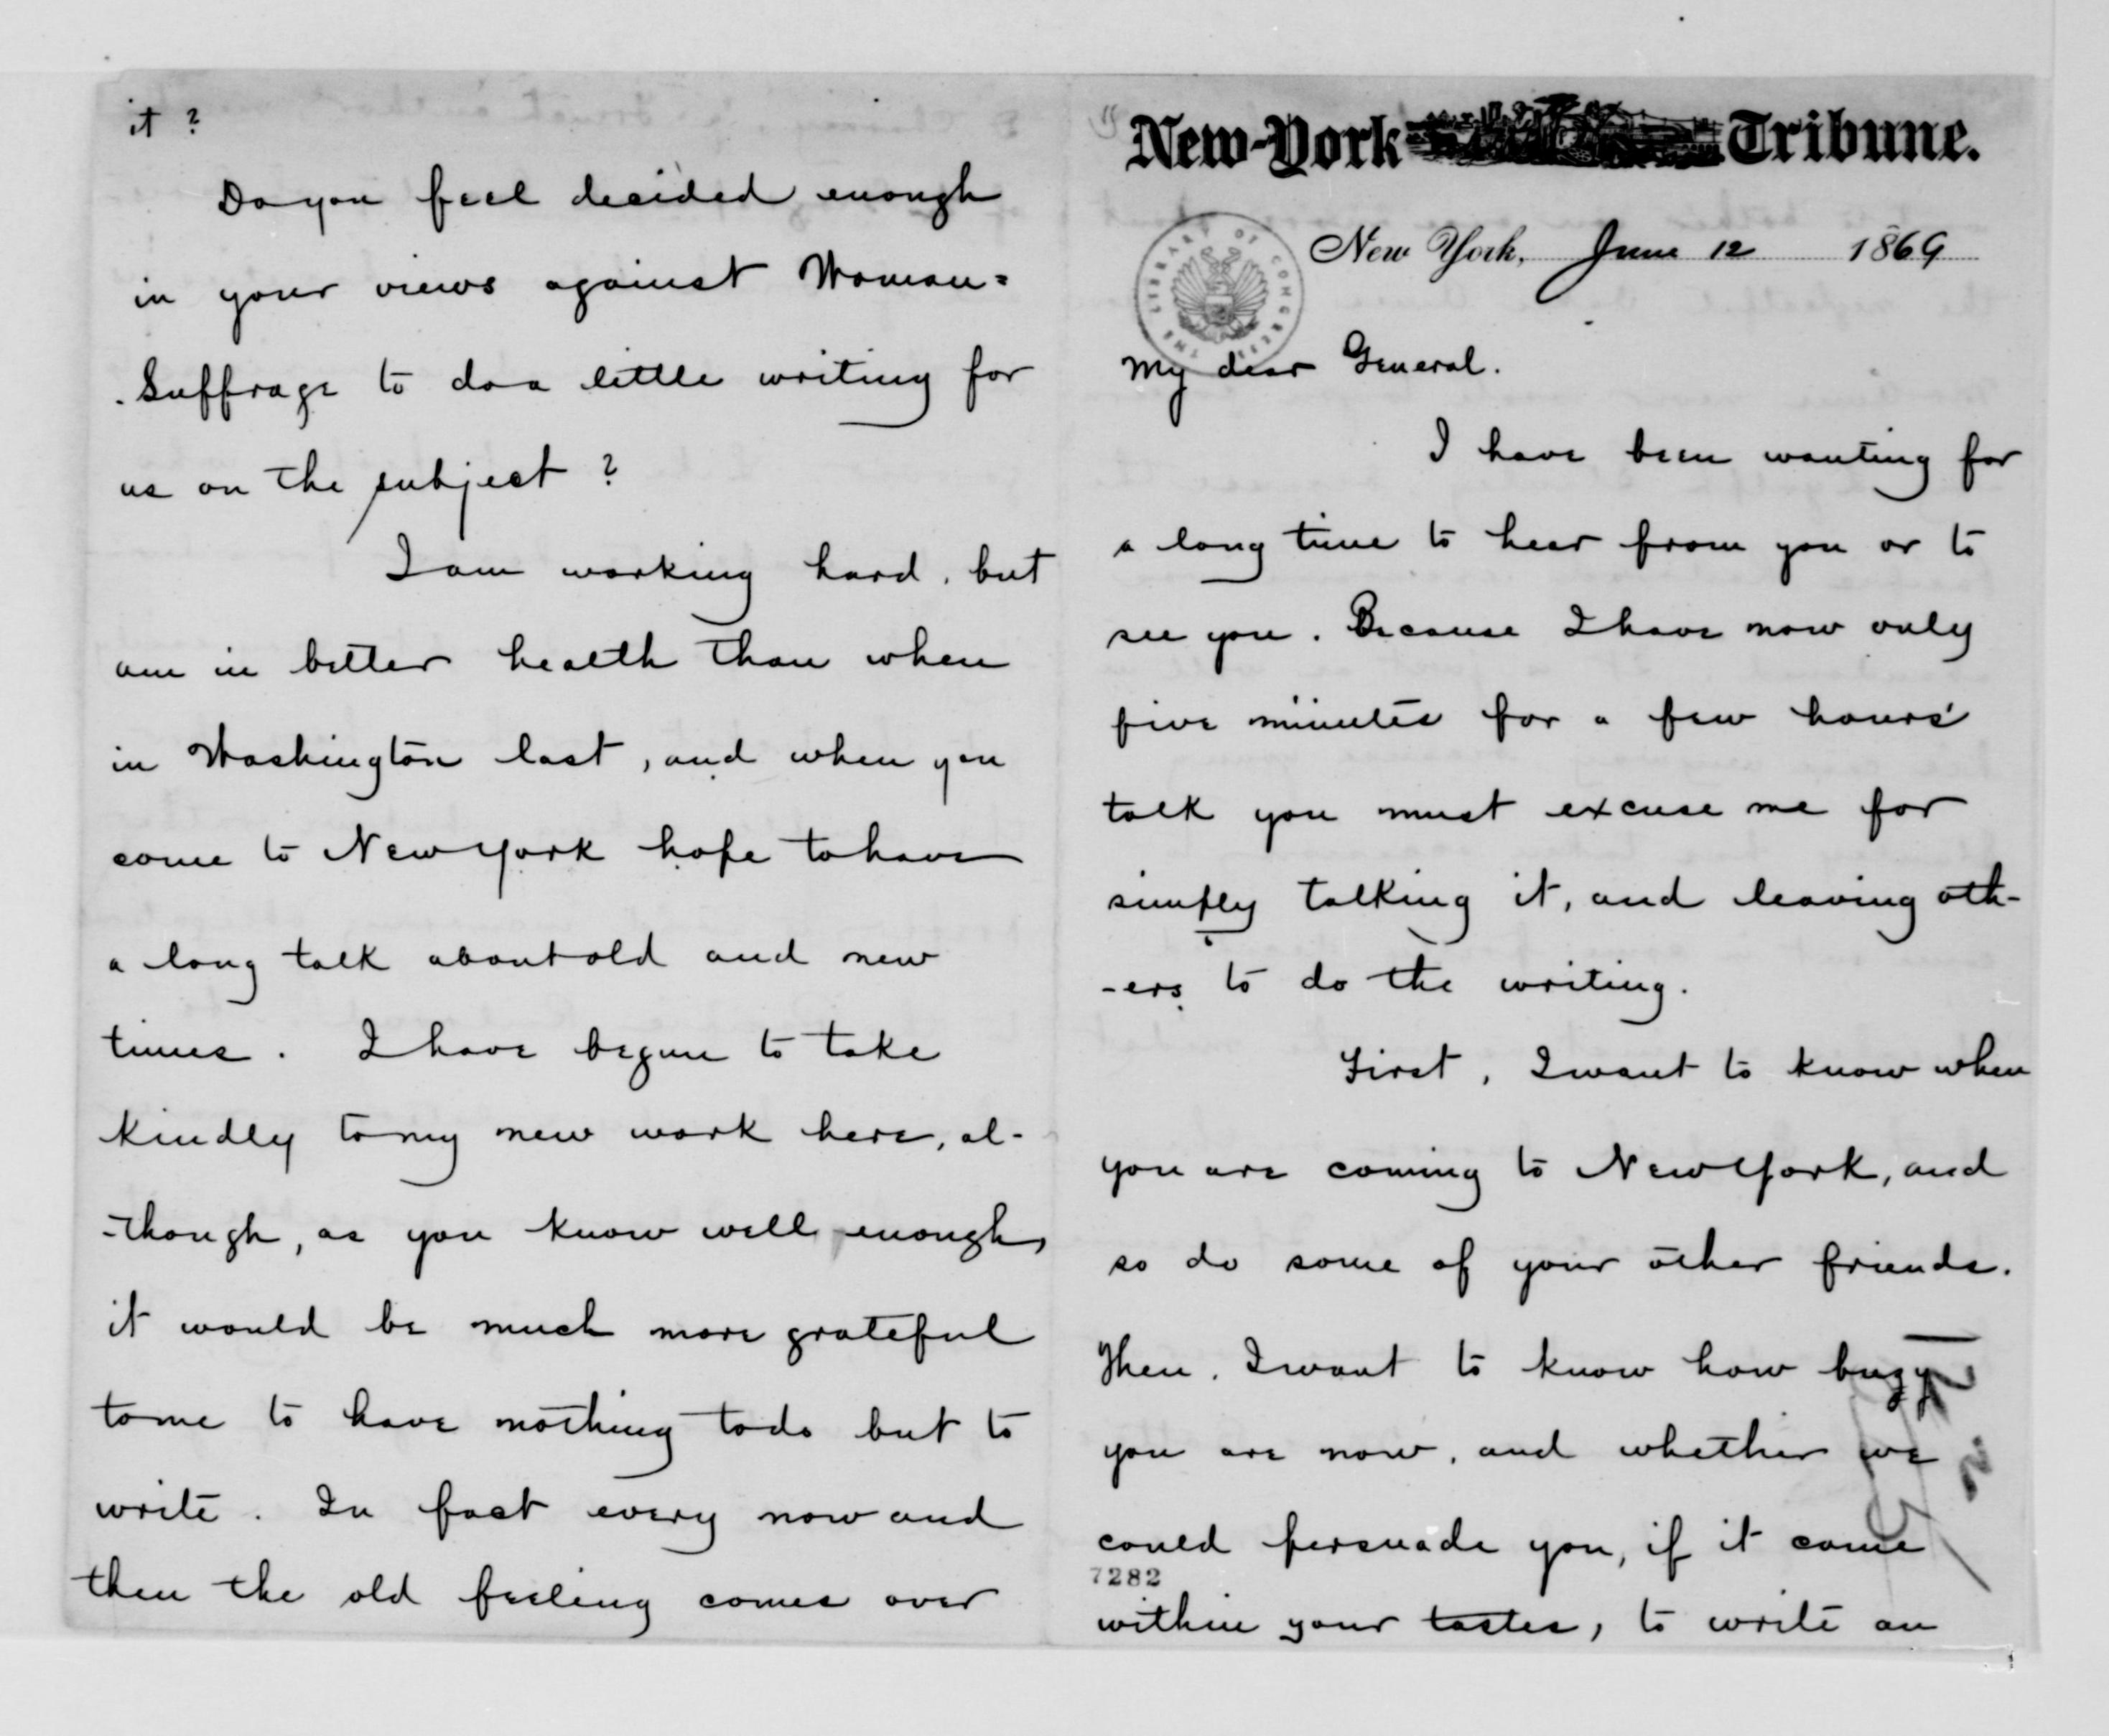 it ?
Do you feel decided enough
in your views against Woman=
Suffrage to do a little writing for
us on the subject ?
I am working hard, but
am in better health than when
in Washington last, and when you
come to New York hope to have
a long talk about old and new
times. I have begun to take
kindly to my new work here, al-
-though, as you know well enough,
it would be much more grateful
to me to have nothing to do but to
write. In fact every now and
then the old feeling comes over
New-York Tribune.
New York, June 12 1869
THE LIBRARY OF CONGRESS
My dear General.
I have been wanting for
a long time to hear from you or to
see you. Because I have now only
five minutes for a few hours'
talk you must excuse me for
simply talking it, and leaving oth-
-ers to do the writing.
First, I want to know when
you are coming to New York, and
so do some of your other friends.
Then, I want to know how busy
you are now, and whether we
could persuade you, if it came
7282
within your tastes, to write an